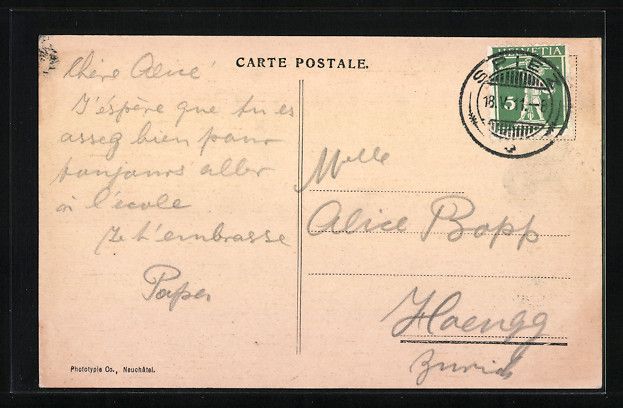 CARTE POSTALE.
Chère Alice
J'éspère que tu es
asseg bien pour
toujours aller
à l'école
Je t'embrasse
Papa
Melle
Alice Bopp
Hoengg
Zurich
HELVETIA
5
SPIEZ
18.V
Phototypie Co., Neuchâtel.